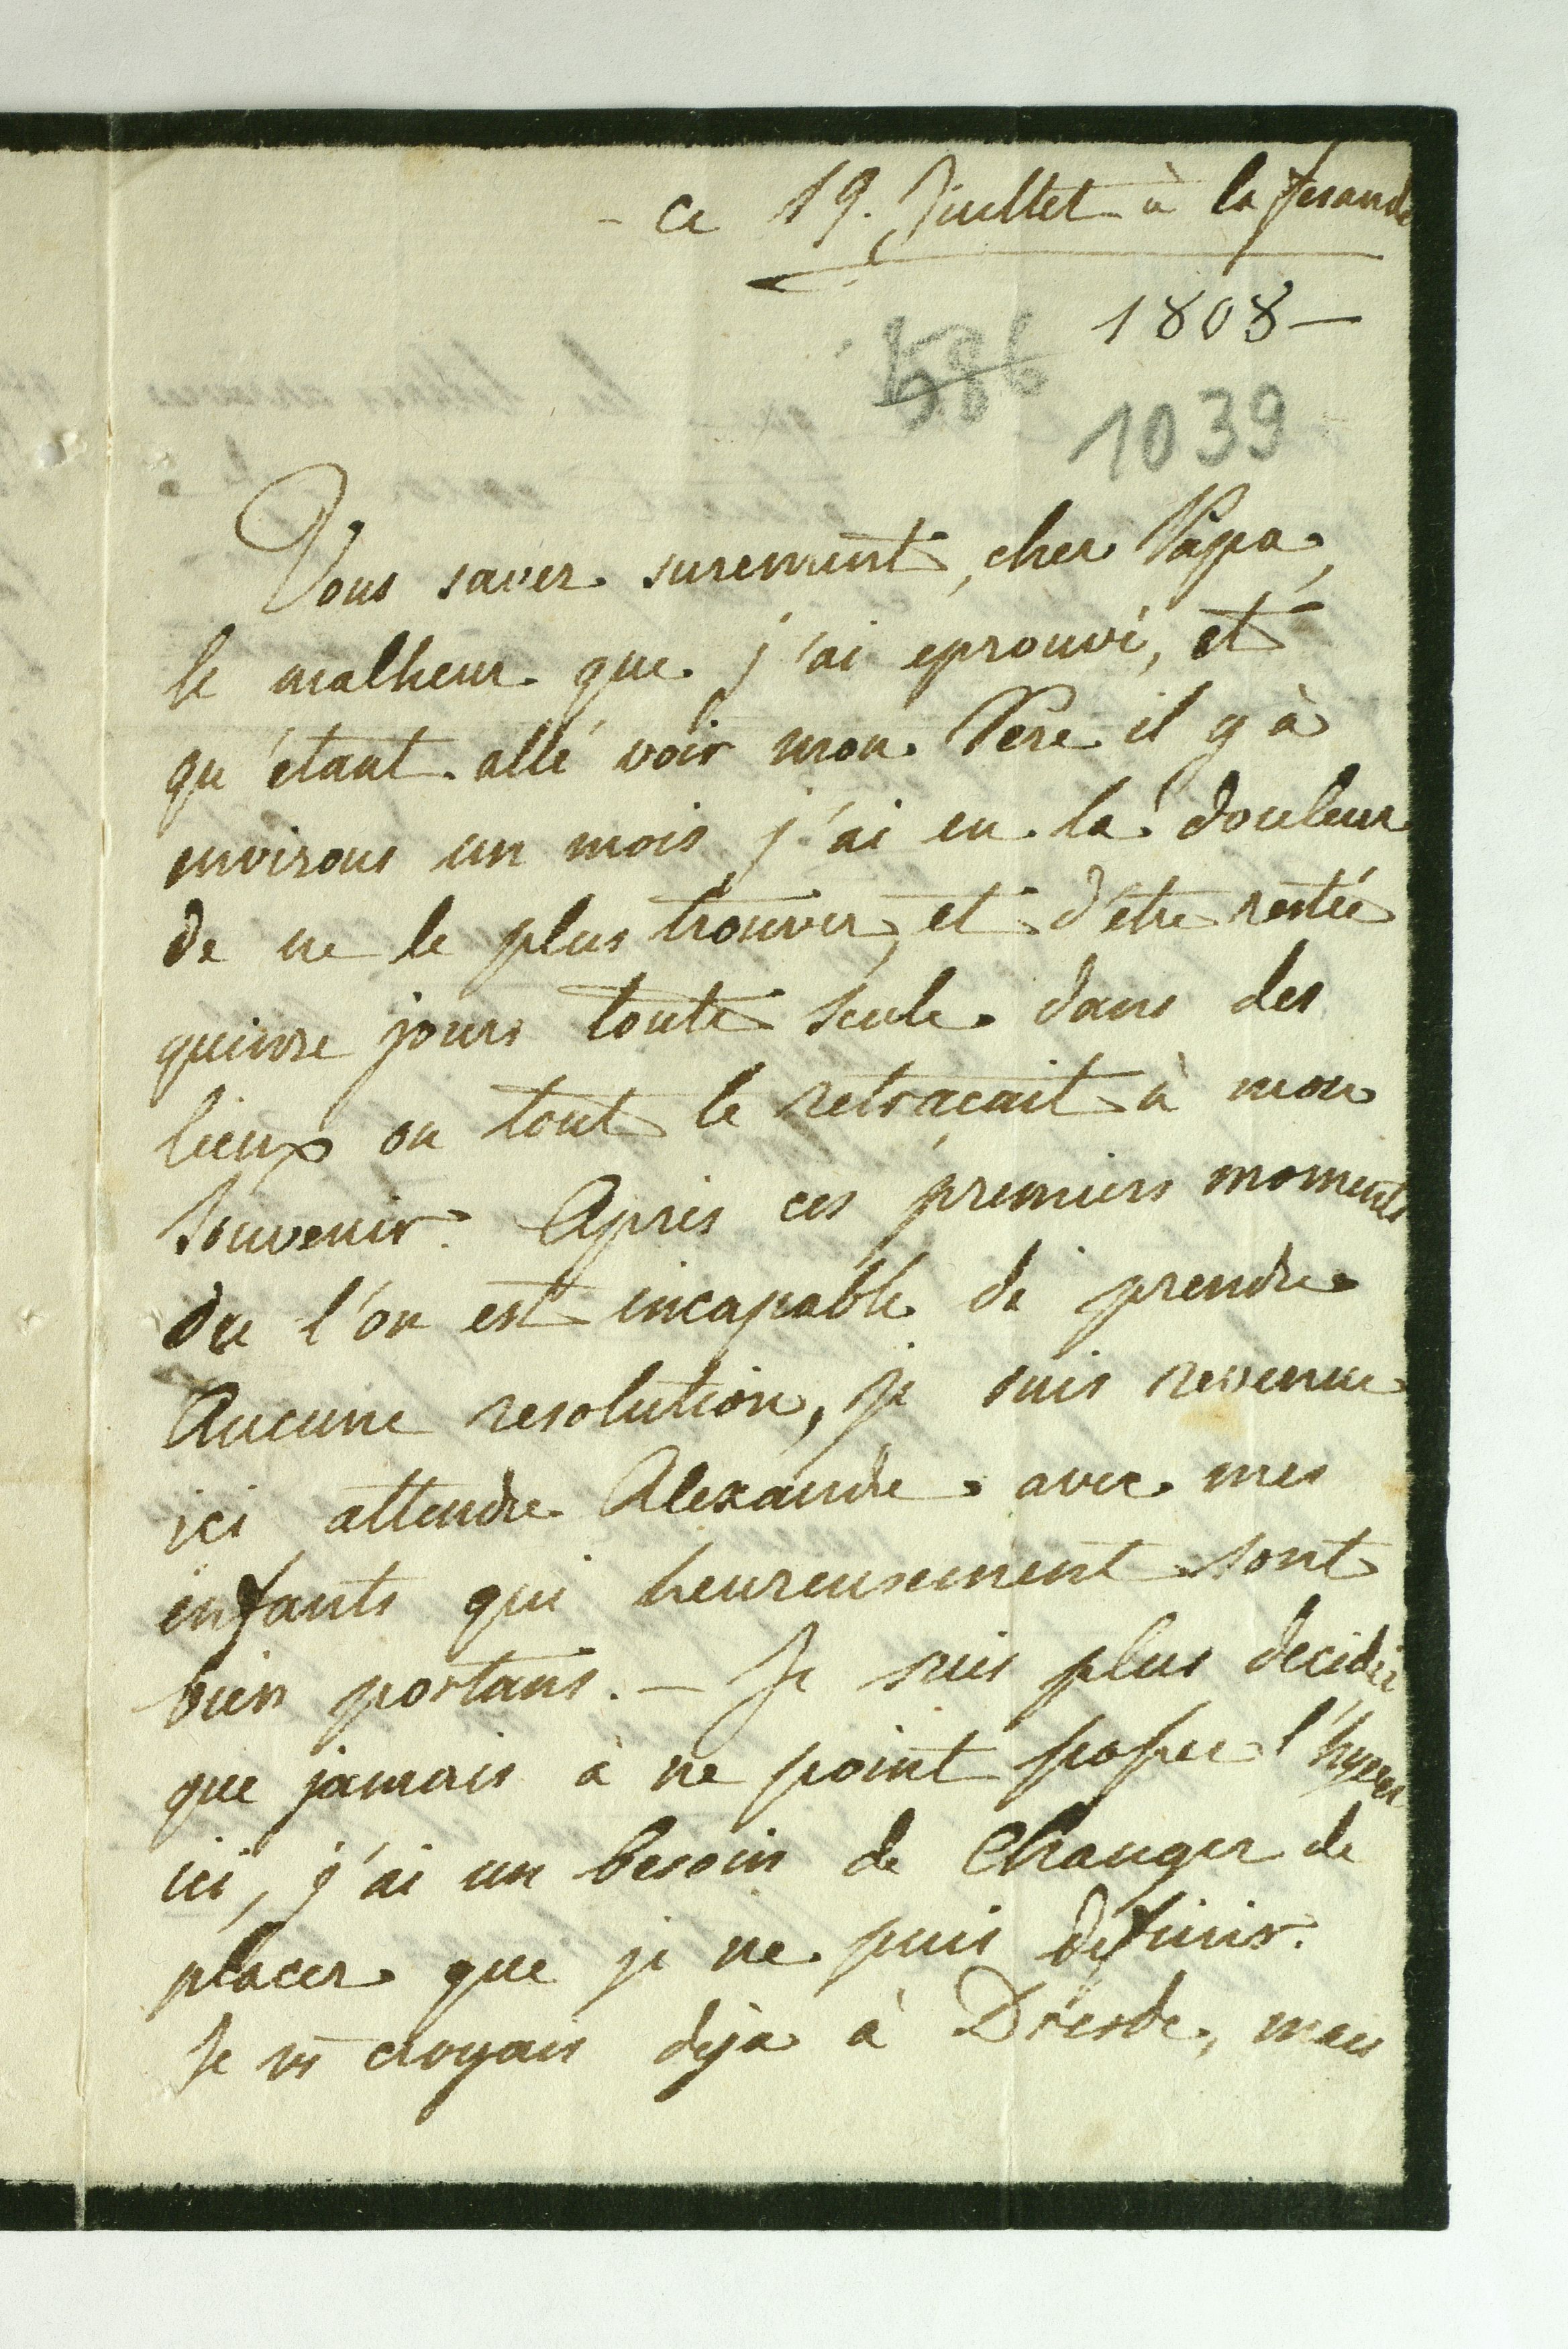 - ce 19. Juillet à la fesande
1808 —
586
1039
Vous savez surement, cher Papa,
le malheur que j'ai eprouvé, et
qu'étant allé voir mon Pere il y à
environs un mois, j'ai eu la douleur
de ne le plus trouver, et d'être restée
quinze jours toute seule dans des
lieux ou tout le retraçait à mon
souvenir. Après ces premiers moments
ou l'on est incapable de prendre
Aucune resolution, je suis revenue
ici attendre Alexandre avec mes
enfants qui heureusement sont
bien portans. — Je suis plus decidée
que jamais à ne point passer l'hyver
ici, j'ai un besoin de changer de
places que je ne puis definir.
Je m croyais deja à Dresde, mais